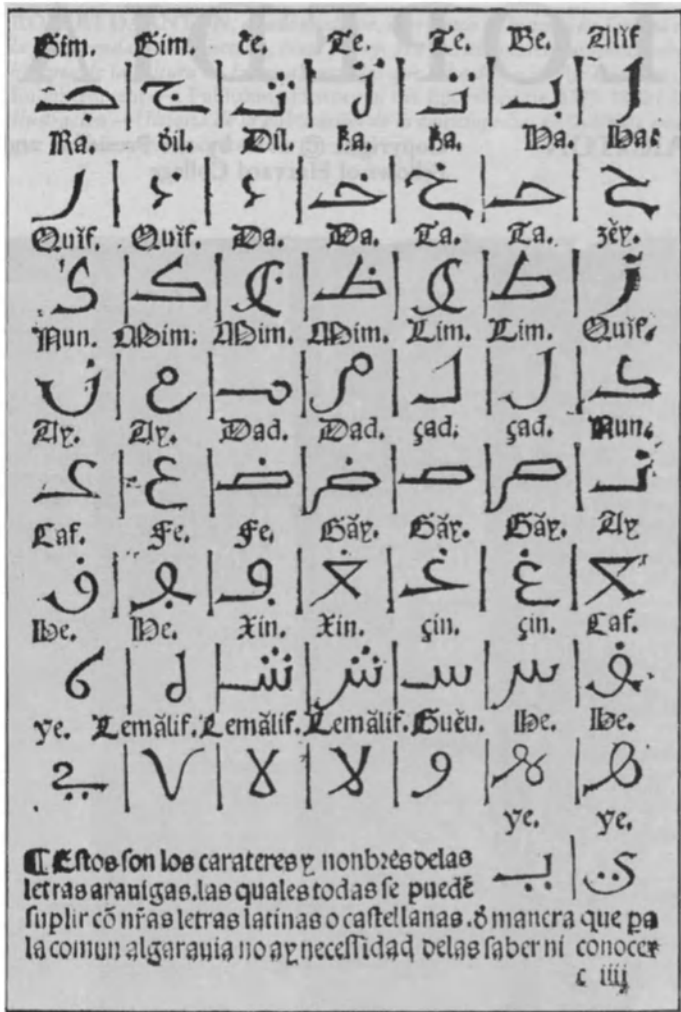 Gim. Gim. c̃e. Te. Te. Be. Alif
جـ ج ث ت ت بـ ا
Ra. dil. Dil. ka. ka. Ha. Ha.
ر د د خـ خ حـ ح
Quif. Quif. Da. Da. Ta. Ta. zĕy.
ك كـ ظ ظ ط ط ز
Nun. Mim. Mim. Mim. Lim. Lim. Quif.
ن م مـ م لـ ل ك
Ay. Ay. Dad. Dad. çad. çad. Nun.
عـ ع ضـ ض صـ ص نـ
Caf. Fe. Fe. Găy. Găy. Găy. Ay
ڧ ڢ ڢ ـغـ غـ غ ـعـ
He. He. Xin. Xin. çin. çin. Caf.
ه ه شـ ش سـ س ڧ
ye. Lemălif. Lemălif. Lemălif. Guĕu. He. He.
ي لا لا لا و ه ه
ye. ye.
يـ ي
¶ Estos son los carateres y nonbres delas
letras arauigas. las quales todas se puedẽ
suplir cõ nr̃as letras latinas o castellanas. d̃ manera que pa
la comun algarauia no ay necessidad delas saber ni conocer
c iiij